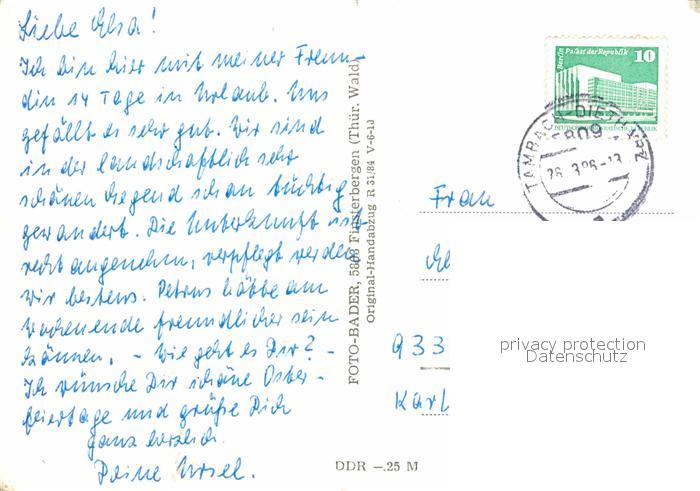 Liebe Elsa!
Ich bin hier mit meiner Freun-
din 14 Tage in Urlaub. Uns
gefällt es sehr gut. Wir sind
in der landschaftlich sehr
schönen Gegend schon tüchtig
gewandert. Die Unterkunft ist
recht angenehm, verpflegt werden
wir bestens. Petrus hätte am
Wochenende freundlicher sein
können. – Wie geht es Dir? –
Ich wünsche Dir schöne Oster-
feiertage und grüße Dich
ganz herzlich.
Deine Ursel.
FOTO-BADER, 5808 Finsterbergen (Thür. Wald)
Original-Handabzug R 31/84 V-6-1J
DDR –.25 M
Berlin Palast der Republik
10
TAMBACH-DIETHARZ
5809
26.3.86-13
Frau
933
Karl
privacy protection
Datenschutz